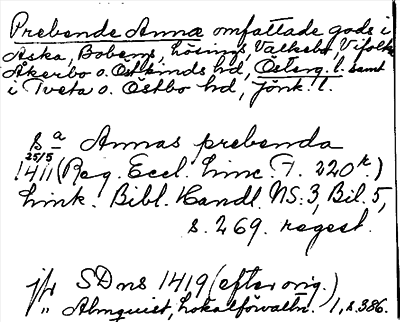 Prebende Annæ omfattade gods i
Aska, Bobergs, Lösings, Valkebo, Vifolka
Åkerbo o. Östkinds hd, Österg. l. samt
i Tveta o. Östbo hd, Jönk. l.
s a Annas prebenda
25/5
1411 (Reg. Eccl. Linc. f. 220 r.)
Link. Bibl. Handl. NS. 3, Bil. 5,
s. 269. regest.
jfr SDns 1419 (efter orig.)
" Almquist, Lokalförvaltn. 1, s. 386.